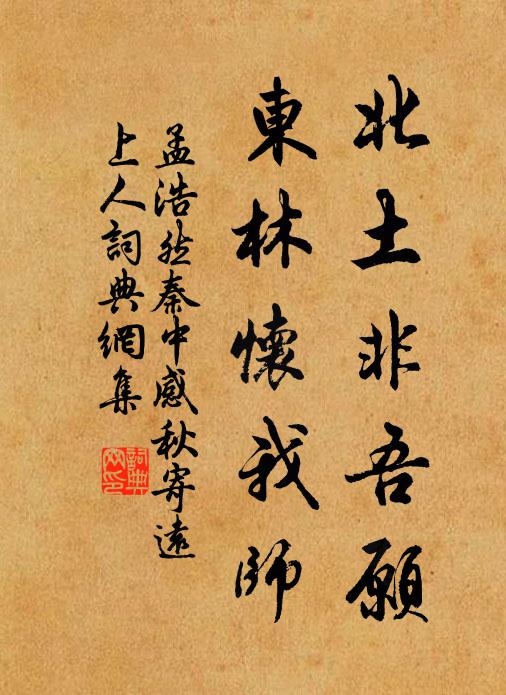 北土非吾願
東林懷我師
孟浩然秦中感秋寄遠
上人詞典網集
詞典網印